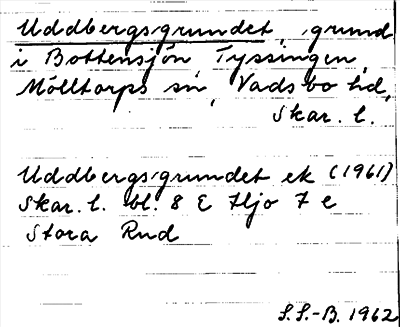 Uddbergsgrundet, grund
i Bottensjön, Tyssingen,
Mölltorps sn, Vadsbo hd,
Skar. l.
Uddbergsgrundet ek (1961)
Skar. l. bl. 8 E Hjo 7 e
Stora Rud
S.S.-B. 1962